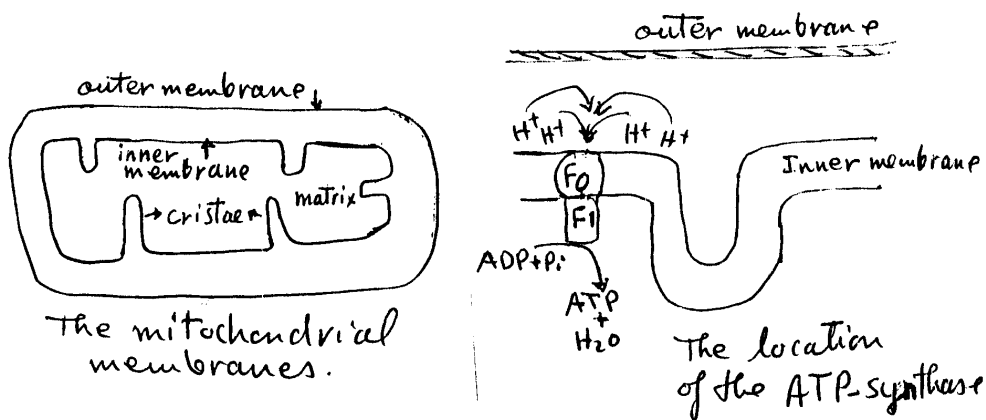 outer membrane
inner
membrane
matrix
cristae
The mitochondrial
membranes.
outer membrane
H+ H+ H+ H+
Inner membrane
F0
F1
ADP+Pi
ATP
+
H2O
The location
of the ATP-synthase